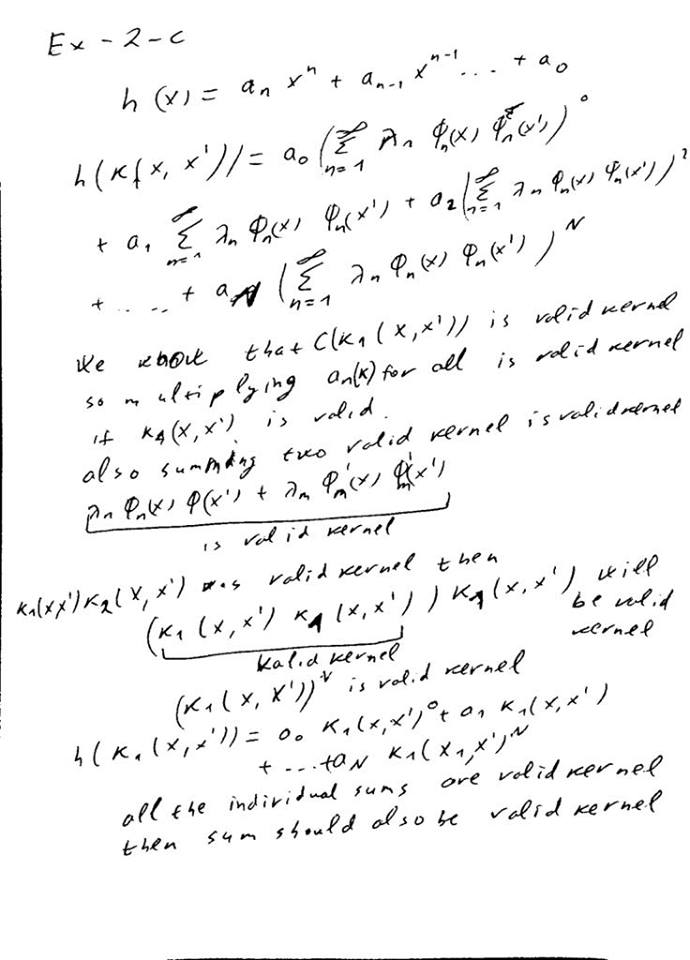 Ex - 2 - c
h (x) = aₙ xⁿ + aₙ₋₁ xⁿ⁻¹ ... + a₀
h(K(x, x')) = a₀ (∑ₙ₌₁^∞ λₙ φₙ(x) φₙ(x'))⁰
+ a₁ ∑ₙ₌₁^∞ λₙ φₙ(x) φₙ(x') + a₂(∑ₙ₌₁^∞ λₙ φₙ(x) φₙ(x'))²
+ .... + a_N (∑ₙ₌₁^∞ λₙ φₙ(x) φₙ(x'))^N
We know that C(K₁(x,x')) is valid kernel
so multiplying aₙ(K) for all is valid kernel
if K₁(x,x') is valid.
also summing two valid kernel is valid kernel
λₙ φₙ(x) φ(x') + λₘ φ'ₘ(x) φ'ₘ(x')
is valid kernel
K₁(xx')K₂(x,x') was valid kernel then
(K₁(x,x') K₁(x,x')) K₁(x,x') will
be valid
kernel
Kalid kernel
(K₁(x, x'))^N is valid kernel
h(K₁(x,x')) = a₀ K₁(x,x')⁰ + a₁ K₁(x,x')
+ ... + a_N K₁(x₁,x')^N
all the individual sums are valid kernel
then sum should also be valid kernel